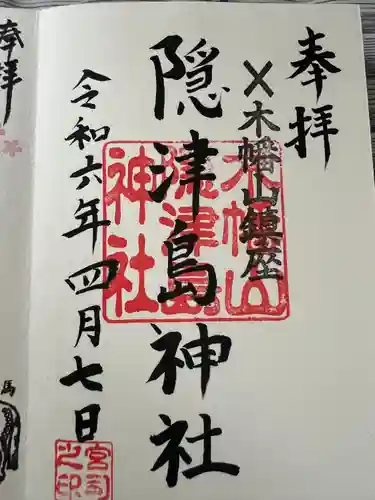 奉拝
〆木幡山鎮座
隠津島神社
令和六年四月七日
木幡山
隠津島
神社
宮司
之印
奉拝
馬